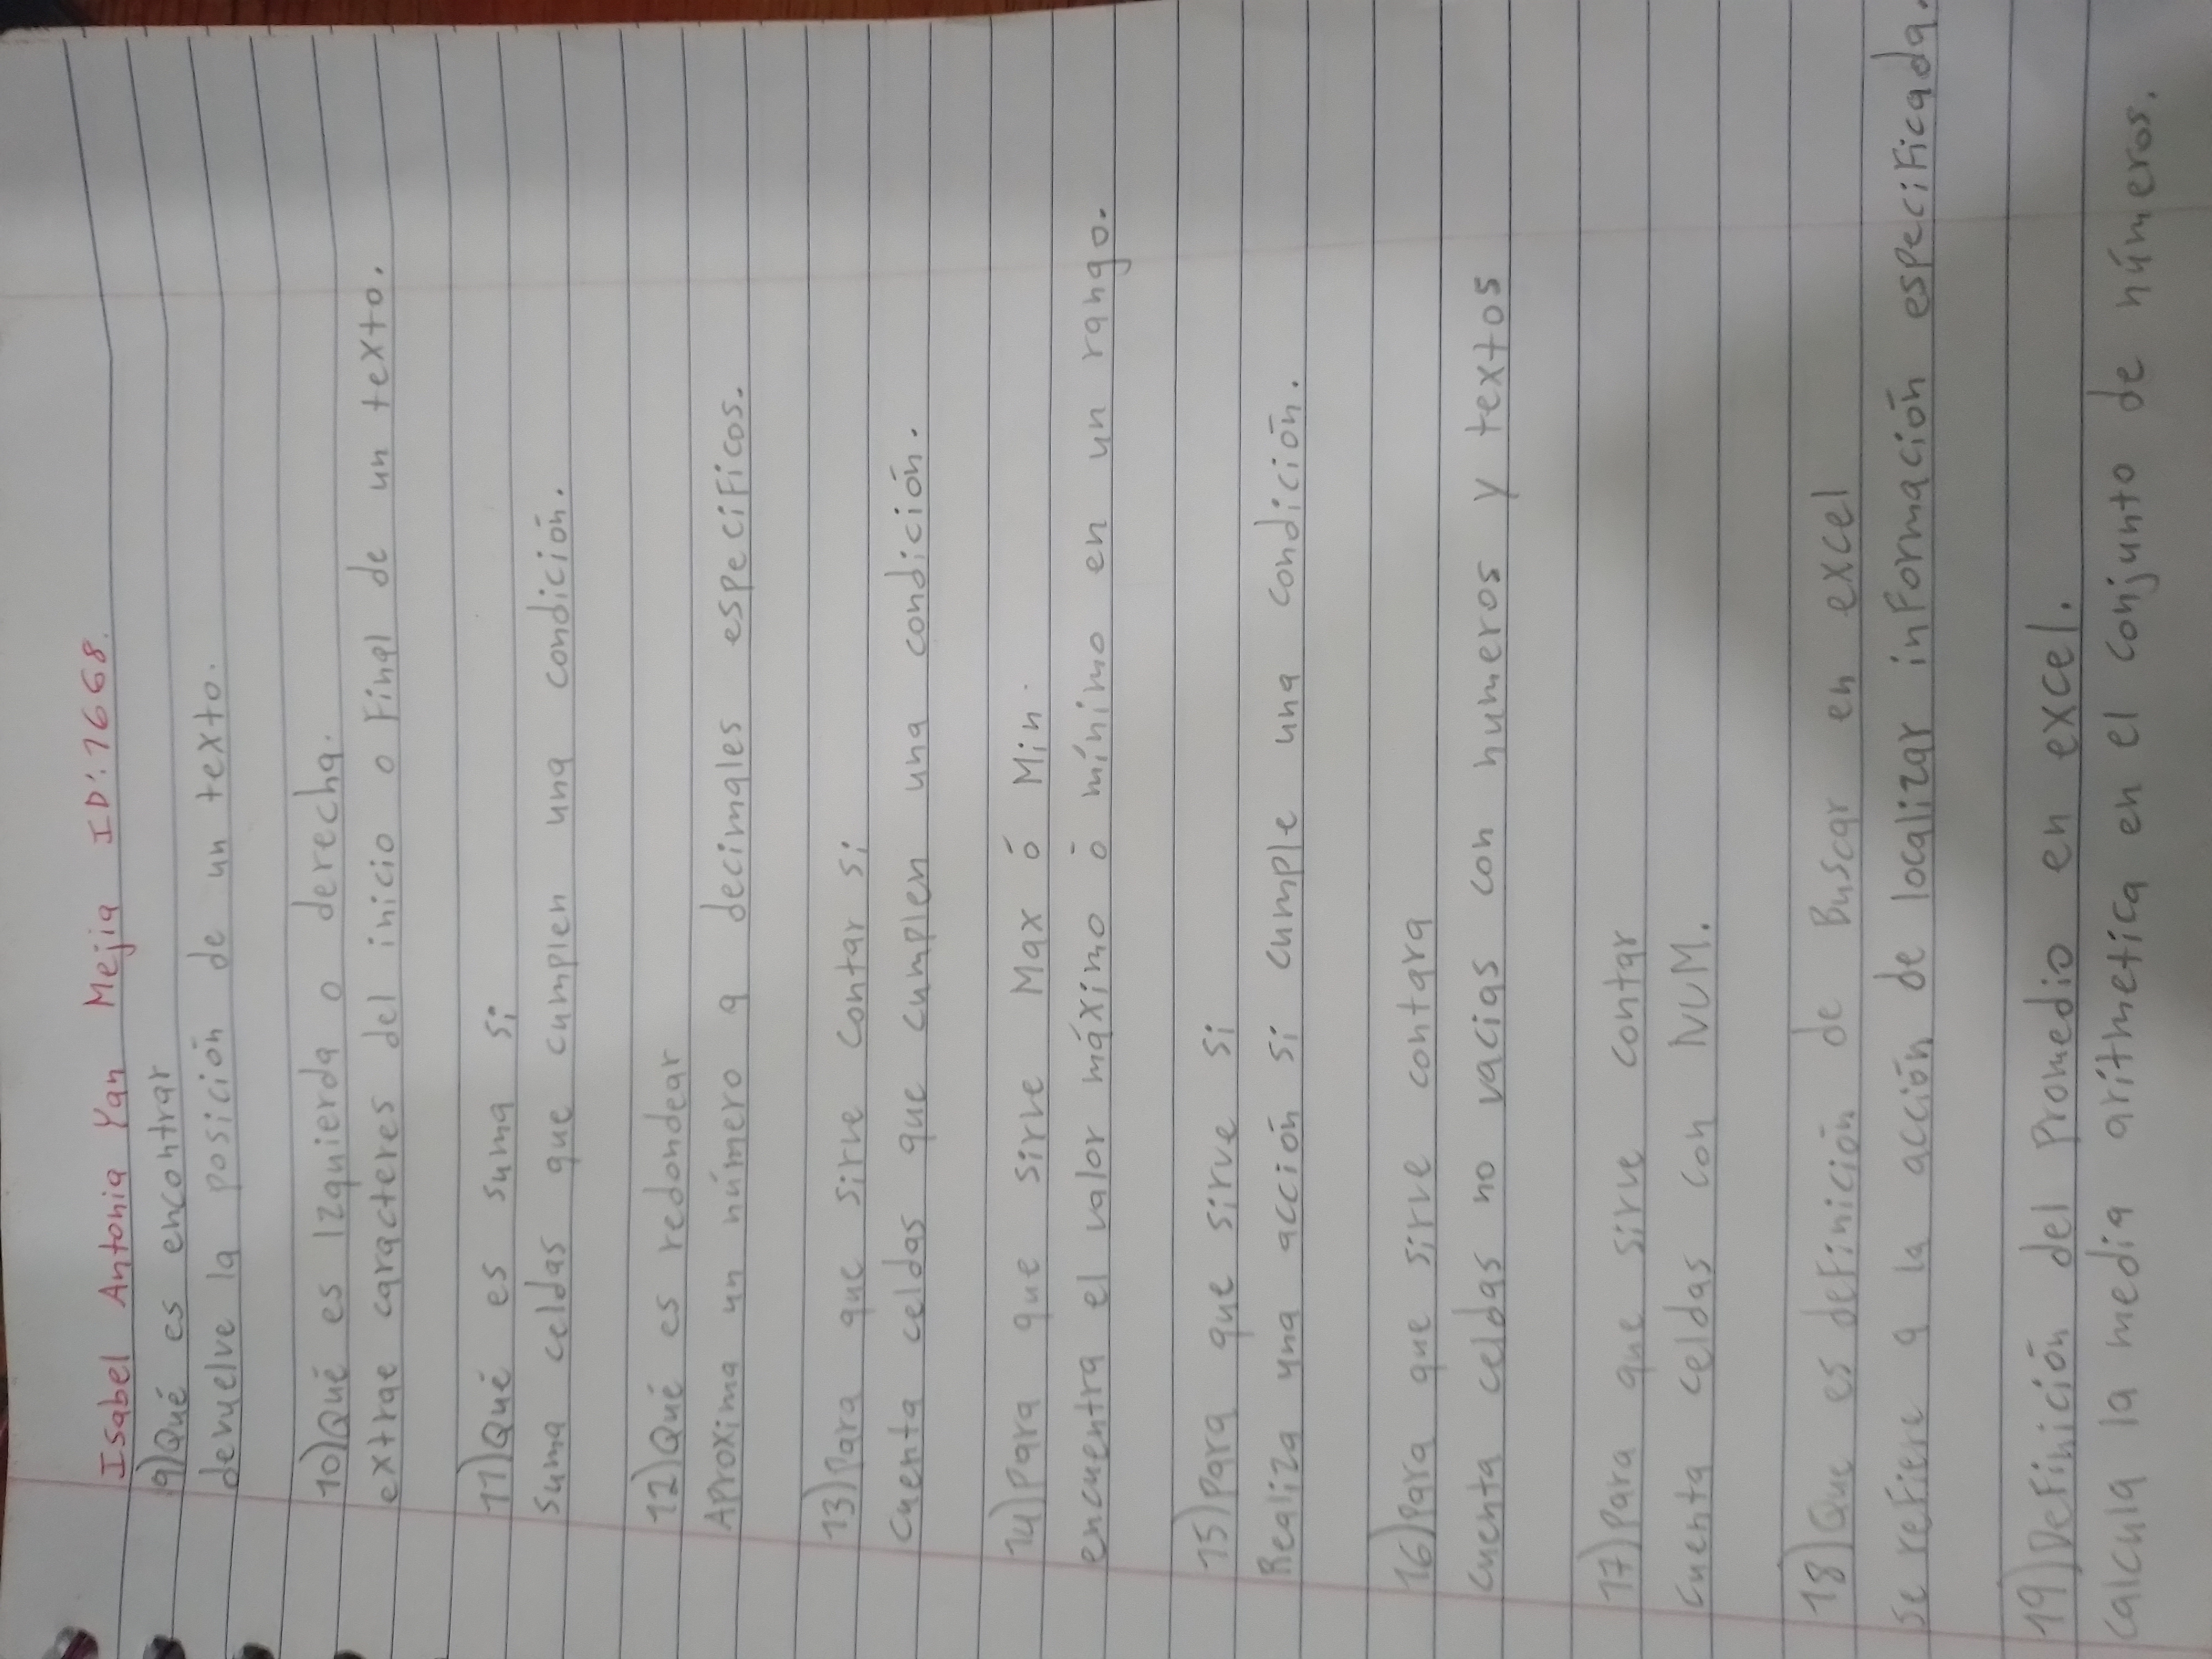 Isabel Antonia Yan Mejia ID:1668.
9) Qué es encontrar
devuelve la posición de un texto.
10) Qué es Izquierda o derecha.
extrae caracteres del inicio o Final de un texto.
11) Qué es suma si
Suma celdas que cumplen una condición.
12) Qué es redondear
Aproxima un número a decimales especificos.
13) Para que sirve contar si
Cuenta celdas que cumplen una condición.
14) Para que sirve Max ó Min.
encuentra el valor máximo ó mínimo en un rango.
15) Para que sirve si
Realiza una acción si cumple una condición.
16) Para que sirve contara
Cuenta celdas no vacias con numeros y textos
17) Para que sirve contar
Cuenta celdas con NUM.
18) Que es definición de Buscar en excel
Se refiere a la acción de localizar información especificada.
19) Definición del Promedio en excel.
Calcula la media aritmetica en el conjunto de números.